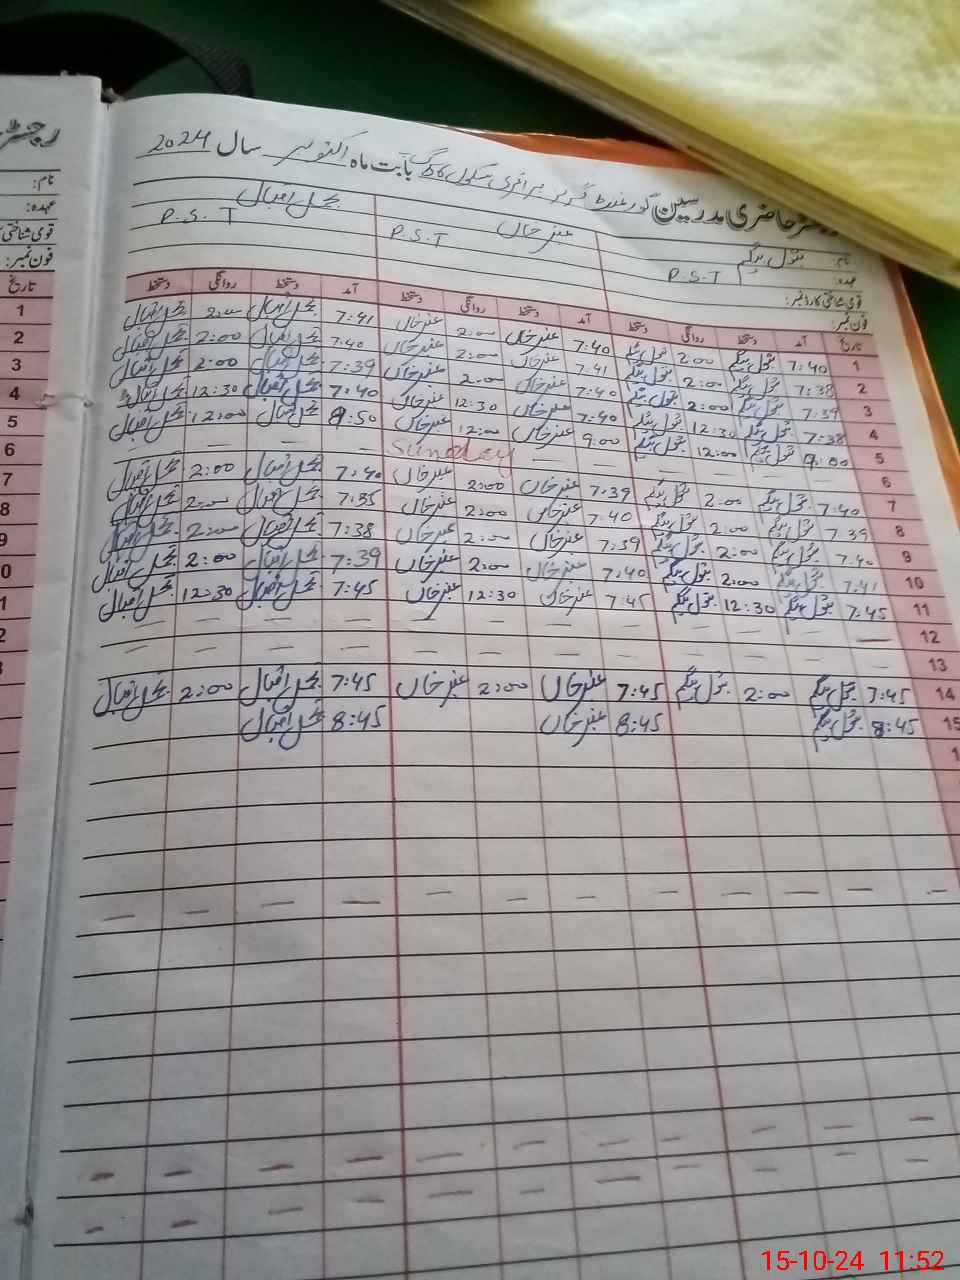 رجسٹر
نام:
عہدہ:
قومی شناختی
فون نمبر:
تاریخ
1
2
3
4
5
6
7
8
9
0
1
2
3
حاضری مدرسین گورنمنٹ گرلز پرائمری سکول بابت ماہ اکتوبر سال 2024
نام: بتول بیگم عنبر خان اقبال
عہدہ: P.S.T P.S.T P.S.T
قومی شناختی کارڈ نمبر:
فون نمبر:
تاریخ آمد دستخط روانگی دستخط آمد دستخط روانگی دستخط آمد دستخط روانگی دستخط
1 7:40 بتول بیگم 2:00 بتول بیگم 7:40 عنبر خان 2:00 عنبر خان 7:41 اقبال 2:00 اقبال
2 7:38 بتول بیگم 2:00 بتول بیگم 7:41 عنبر خان 2:00 عنبر خان 7:40 اقبال 2:00 اقبال
3 7:39 بتول بیگم 2:00 بتول بیگم 7:40 عنبر خان 2:00 عنبر خان 7:39 اقبال 2:00 اقبال
4 7:38 بتول بیگم 12:30 بتول بیگم 7:40 عنبر خان 12:30 عنبر خان 7:40 اقبال 12:30 اقبال
5 9:00 بتول بیگم 12:00 بتول بیگم 9:00 عنبر خان 12:00 عنبر خان 8:50 اقبال 12:00 اقبال
6 — — — — — Sunday — — — —
7 7:40 بتول بیگم 2:00 بتول بیگم 7:39 عنبر خان 2:00 عنبر خان 7:40 اقبال 2:00 اقبال
8 7:39 بتول بیگم 2:00 بتول بیگم 7:40 عنبر خان 2:00 عنبر خان 7:35 اقبال 2:00 اقبال
9 7:40 بتول بیگم 2:00 بتول بیگم 7:39 عنبر خان 2:00 عنبر خان 7:38 اقبال 2:00 اقبال
10 7:41 بتول بیگم 2:00 بتول بیگم 7:40 عنبر خان 2:00 عنبر خان 7:39 اقبال 2:00 اقبال
11 7:45 بتول بیگم 12:30 بتول بیگم 7:45 عنبر خان 12:30 عنبر خان 7:45 اقبال 12:30 اقبال
12 — — — — — — — — — — — —
13 — — — — — — — — — — — —
14 7:45 بتول بیگم 2:00 بتول بیگم 7:45 عنبر خان 2:00 عنبر خان 7:45 اقبال 2:00 اقبال
15 8:45 بتول بیگم 8:45 عنبر خان 8:45 اقبال
1
15-10-24 11:52